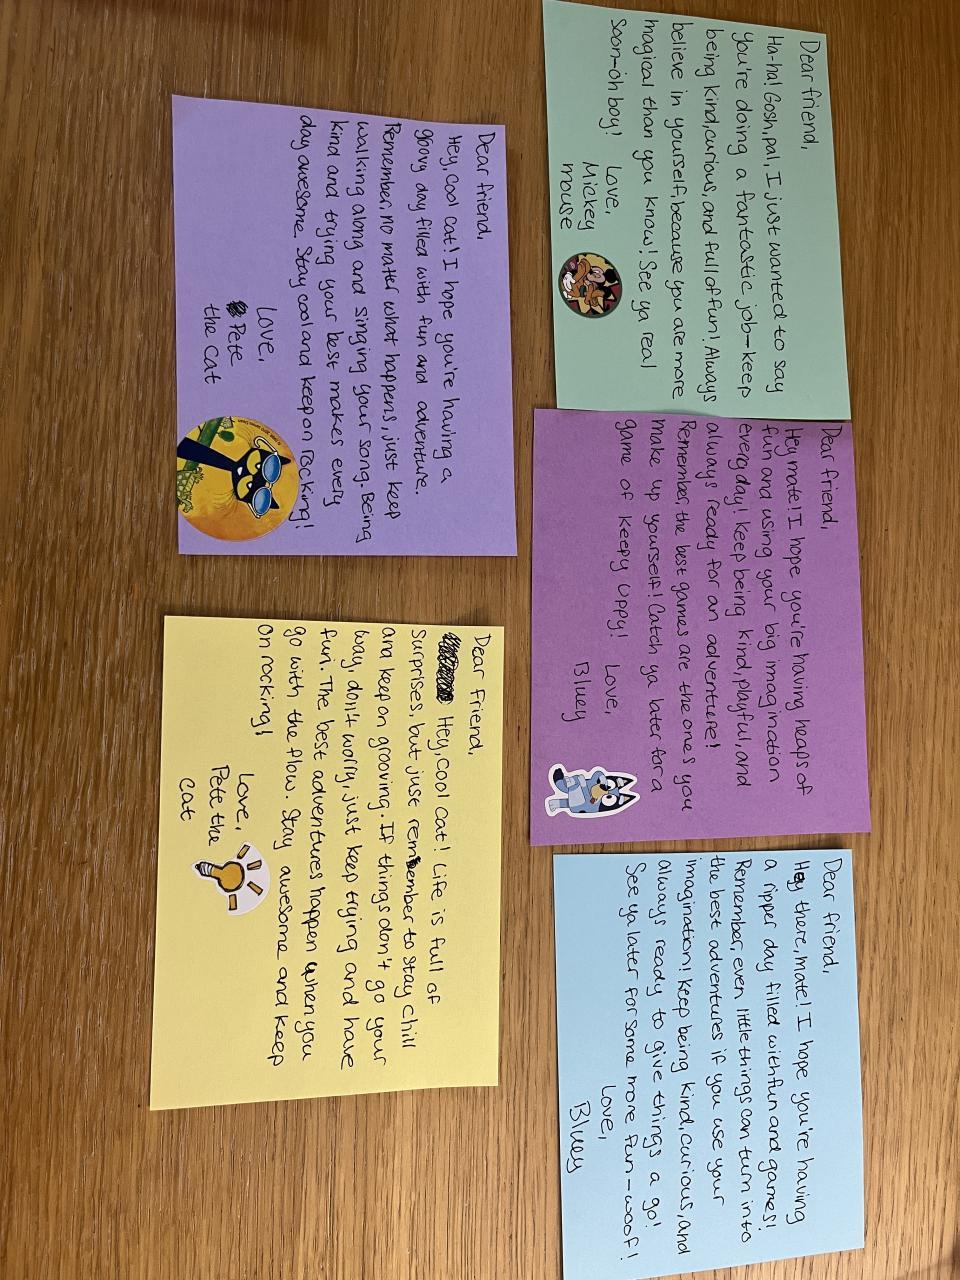 Dear friend,
Ha-ha! Gosh, pal, I just wanted to say
you're doing a fantastic job-keep
being kind, curious, and full of fun! Always
believe in yourself, because you are more
magical than you know! See ya real
soon-oh boy!
Love,
Mickey
mouse
Dear friend,
Hey mate! I hope you're having heaps of
fun and using your big imagination
every day! Keep being kind, playful, and
always ready for an adventure!
Remember, the best games are the ones you
make up yourself! Catch ya later for a
game of Keepy Uppy!
Love,
Bluey
Dear friend,
Hey there, mate! I hope you're having
a ripper day filled with fun and games!
Remember, even little things can turn into
the best adventures if you use your
imagination! Keep being kind, curious, and
always ready to give things a go!
See ya later for some more fun-woof!
Love,
Bluey
Dear friend,
Hey, cool cat! I hope you're having a
goovy day filled with fun and adventure.
Remember, no matter what happens, just keep
walking along and singing your song. Being
kind and trying your best makes every
day awesome. Stay cool and keep on rocking!
Love,
Pete
the Cat
Dear friend,
Hey, cool cat! Life is full of
surprises, but just remember to stay chill
and keep on grooving. If things don't go your
way, don't worry, just keep trying and have
fun. The best adventures happen when you
go with the flow. Stay awesome and keep
on rocking!
Love,
Pete the
Cat